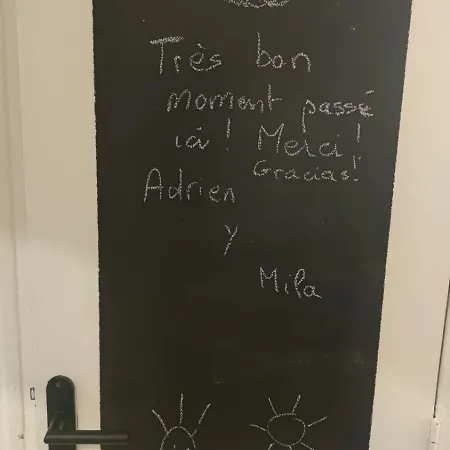 Très bon
moment passé
ici ! Merci !
Gracias!
Adrien
y
Mila